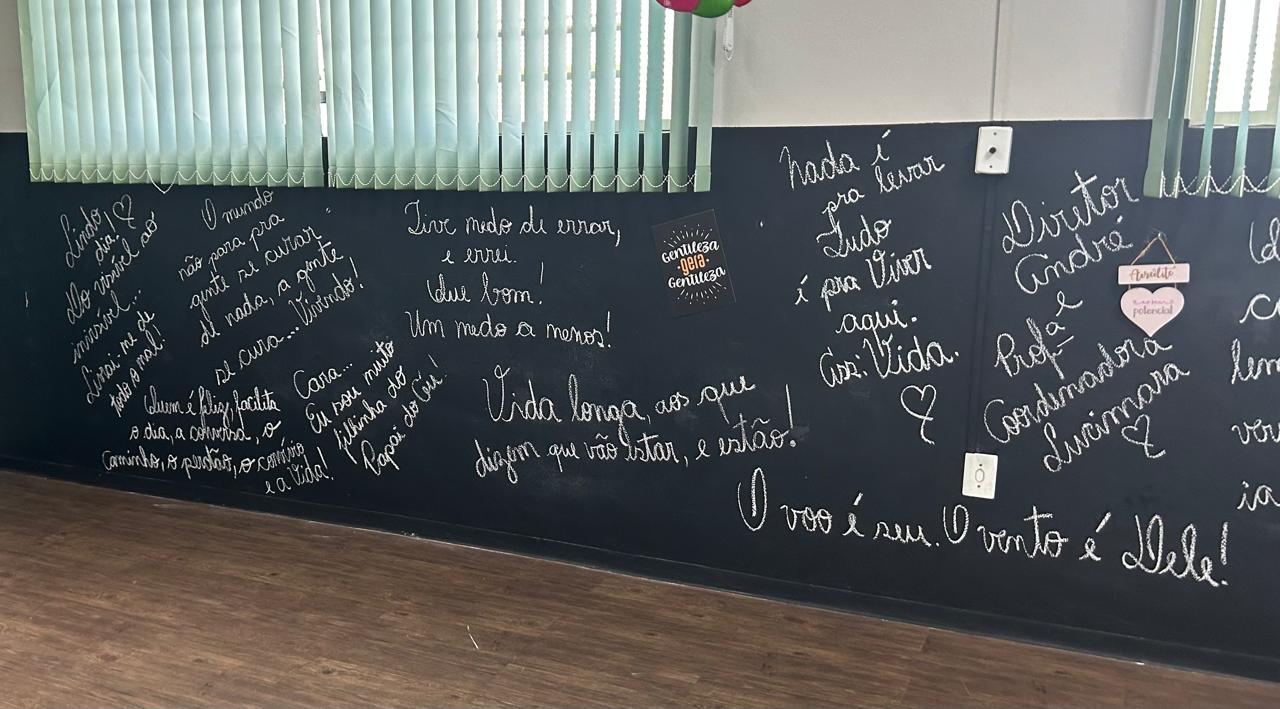 Lindo
dia!
Do visível ao
invisível...
Livrai-me de
todo o mal!
O mundo
não para pra
gente se curar
de nada, a gente
se cura... Vivendo!
Tive medo de errar,
e errei.
Que bom!
Um medo a menos!
Gentileza
·gera·
Gentileza
Nada é
pra levar
Tudo
é pra Viver
aqui.
Ass: Vida.
Diretor
André
e
Profª
Coordenadora
Lucimara
Acredite
potencial
Quem é feliz, facilita
o dia, a conversa, o
Caminho, o perdão, o convívio
e a Vida!
Cara...
Eu sou muito
filhinha do
Papai do Céu!
Vida longa, aos que
dizem que vão estar, e estão!
O voo é seu. O vento é Dele!